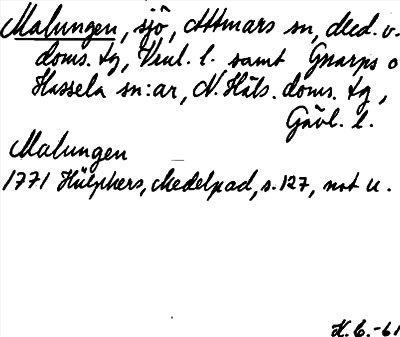 Malungen, sjö, Attmars sn, Med. v.
doms. tg, Vnl. l. samt Gnarps o
Hassela sn:ar, N. Häls. doms. tg,
Gävl. l.
Malungen
1771 Hülphers, Medelpad, s. 127, not u.
H. C. -61